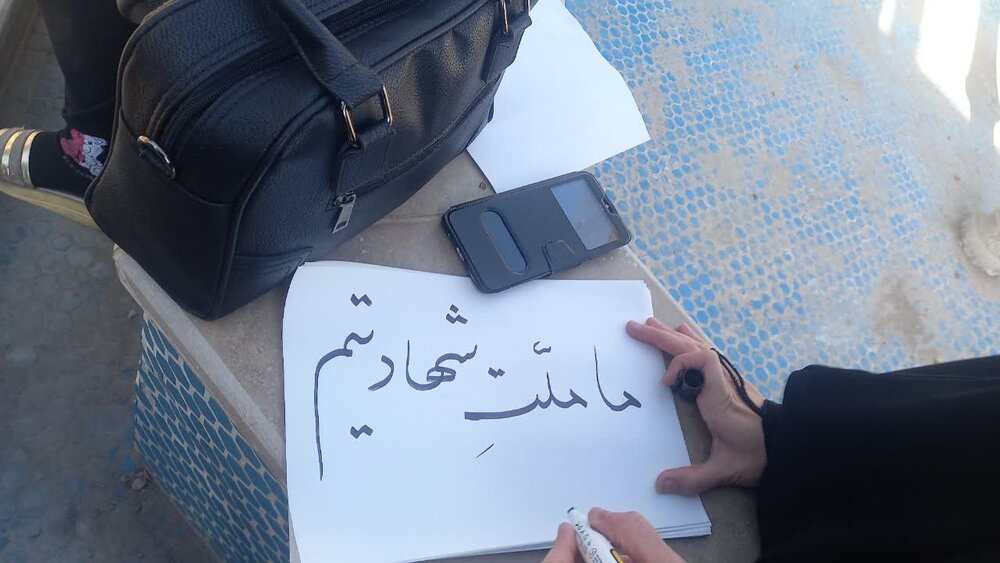 ما ملّتِ شهادتیم